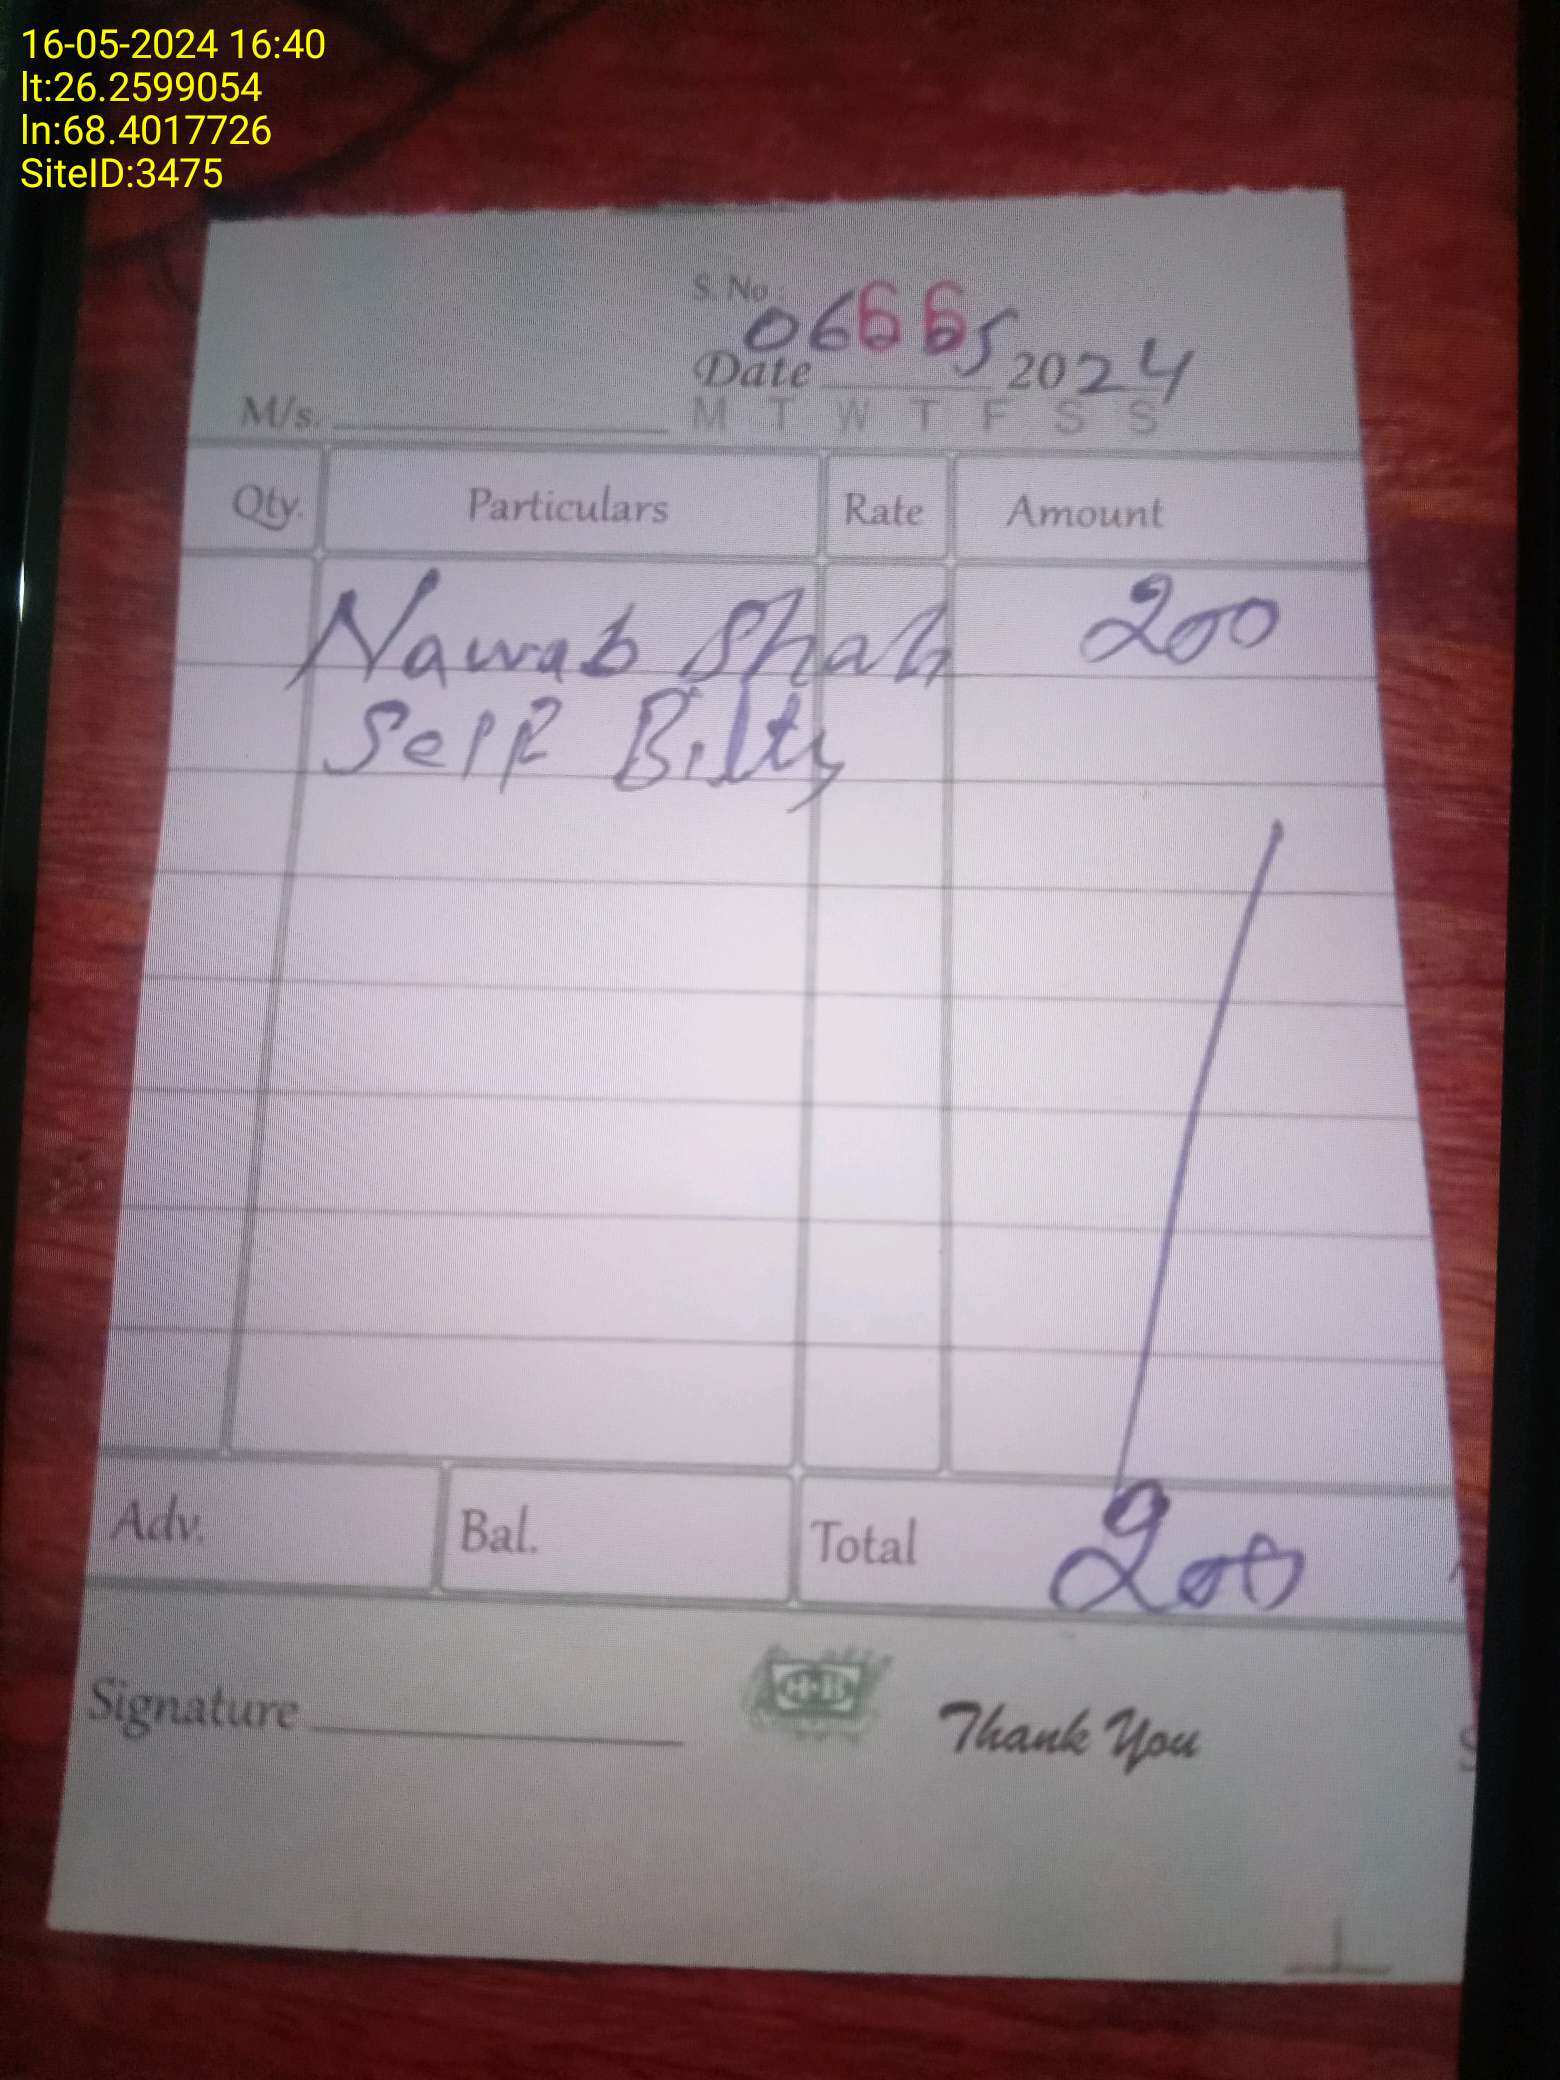 16-05-2024 16:40
lt:26.2599054
ln:68.4017726
SiteID:3475
S. No.
Date 2024
M/s.
M T W T F S S
Qty. Particulars Rate Amount
Nawab Shah 200
Self Bilty
Adv. Bal. Total 200
Signature
Thank You